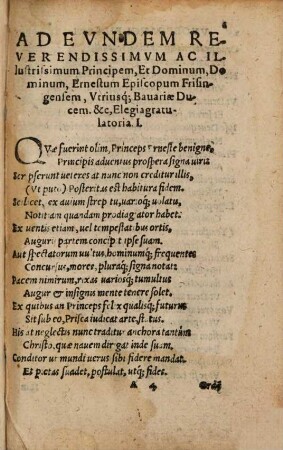 AD EVNDEM RE
VERENDISSIMVM AC IL
lustrissimum Principem, Et Dominum, Do
minum, Ernestum Episcopum Frisin
gensem, Vtriusq; Bauariæ Du
cem. &c, Elegia gratu
latoria. I.
QVæ fuerint olim, Princeps Erneste benigne,
Principis aduentus prospera signa uiri:
Scripserunt ueteres at nunc non creditur illis,
(Vt puto) Posteritas est habitura fidem.
Scilicet, ex auium strepitu, uarioq; uolatu,
Notitiam quandam prodigiator habet.
Ex uentis etiam, uel tempestatibus ortis,
Augurii partem concipit ipse suam.
Aut spectatorum uultus, hominumq; frequentes
Concursus, mores, pluraq; signa notat:
Pacem nimirum, rixas uariosq; tumultus
Augur & insignis mente tenere solet.
Ex quibus an Princeps felix quoq; futurus,
Sit sub eo, Prisca iudicat arte, status.
His at neglectis nunc traditur anchora tantum
Christo, quæ nauem dirigat inde suam.
Conditor ut mundi uerus sibi fidere mandat,
Et pietas suadet, postulat, utq; fides.
A 4 Ordi